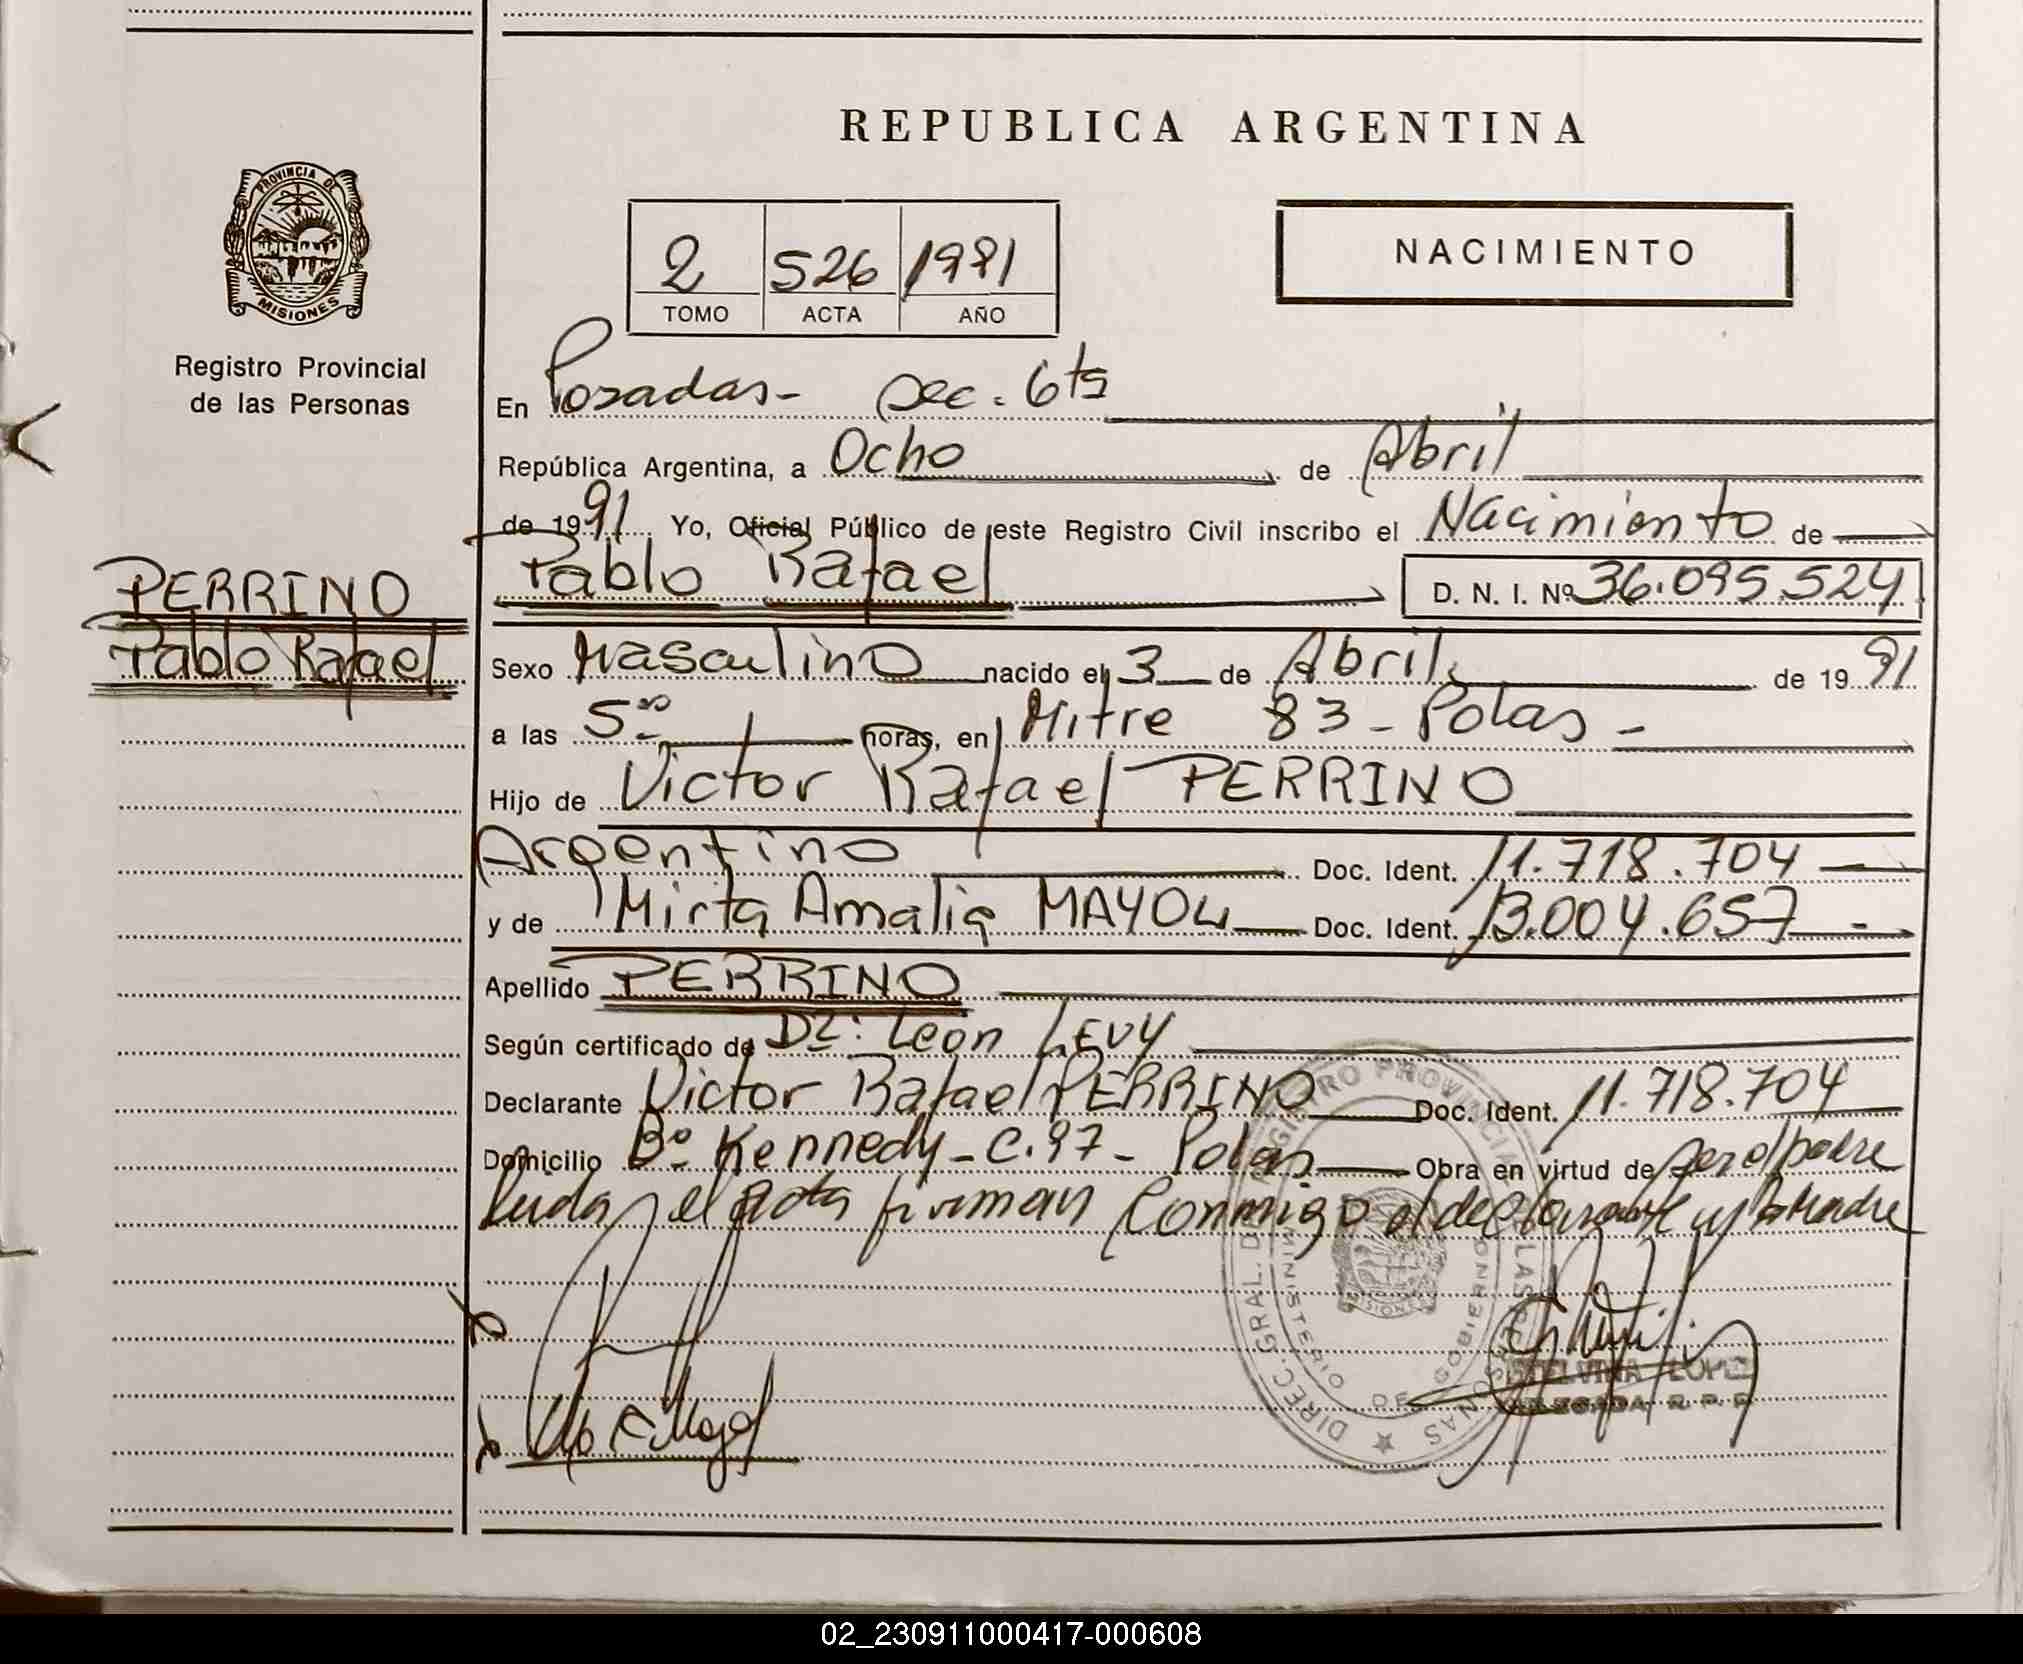 REPUBLICA ARGENTINA
PROVINCIA DE
MISIONES
Registro Provincial
de las Personas
2 526 1991
TOMO ACTA AÑO
NACIMIENTO
En Posadas - Sec. 6ta
República Argentina, a Ocho de Abril
de 1991 Yo, Oficial Público de este Registro Civil inscribo el Nacimiento de
PERRINO
Pablo Rafael
Pablo Rafael D. N. I. Nº 36.095.524
Sexo Masculino nacido el 3 de Abril de 1991
a las 5 horas, en Mitre 83 - Pdas -
Hijo de Victor Rafael PERRINO
Argentino Doc. Ident. 11.718.704
y de Mirta Amalia MAYOL Doc. Ident. 13.004.657
Apellido PERRINO
Según certificado de Dr: Leon LEVY
Declarante Victor Rafael PERRINO Doc. Ident. 11.718.704
Domicilio Bº Kennedy - C. 97 - Pdas Obra en virtud de ser el padre
Leída el Acta firman conmigo el declarante y la Madre
DIREC. GRAL. DEL REGISTRO PROVINCIAL DE LAS PERSONAS
MINISTERIO DE GOBIERNO
MISIONES
ETELVINA LOPEZ
DELEGADA R. P. P.
02_230911000417-000608